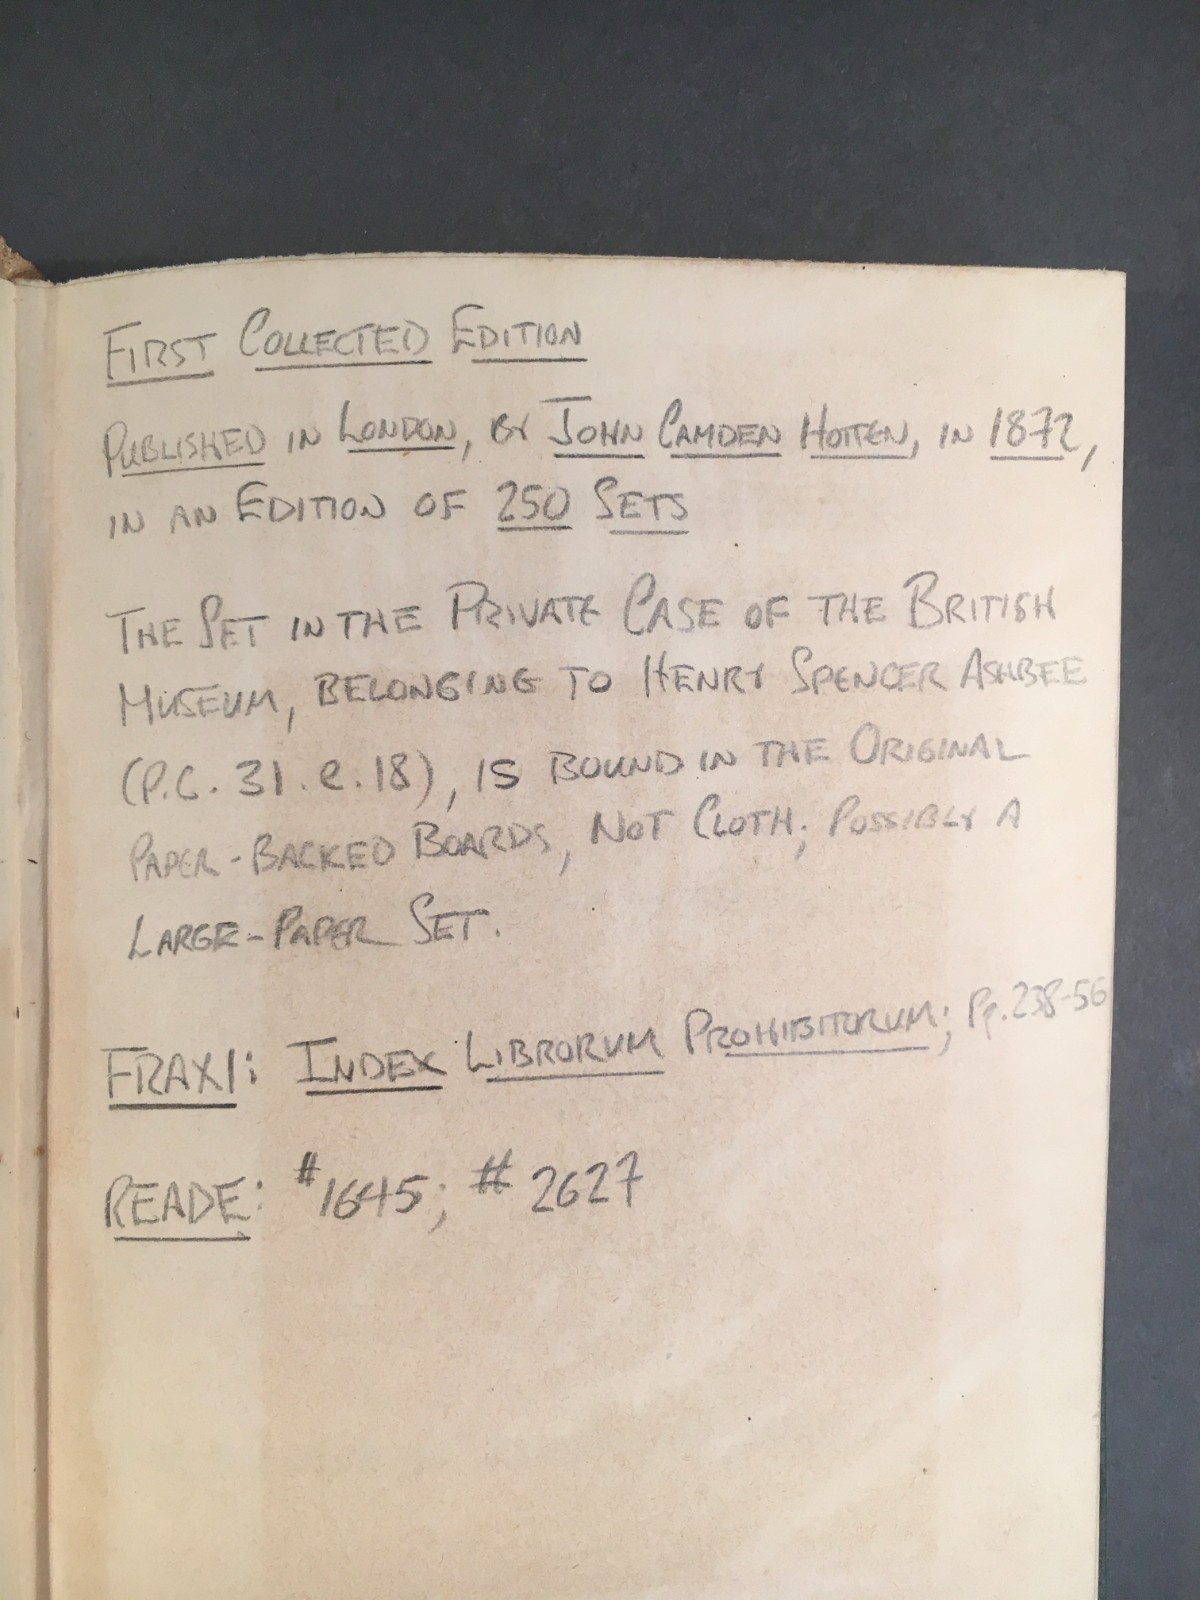 FIRST COLLECTED EDITION
PUBLISHED IN LONDON, BY JOHN CAMDEN HOTTEN, IN 1872,
IN AN EDITION OF 250 SETS
THE SET IN THE PRIVATE CASE OF THE BRITISH
MUSEUM, BELONGING TO HENRY SPENCER ASHBEE
(P.C. 31. e. 18), IS BOUND IN THE ORIGINAL
PAPER-BACKED BOARDS, NOT CLOTH; POSSIBLY A
LARGE-PAPER SET.
FRAXI: INDEX LIBRORUM PROHIBITORUM; Pp. 238-56
READE: #1645; #2627